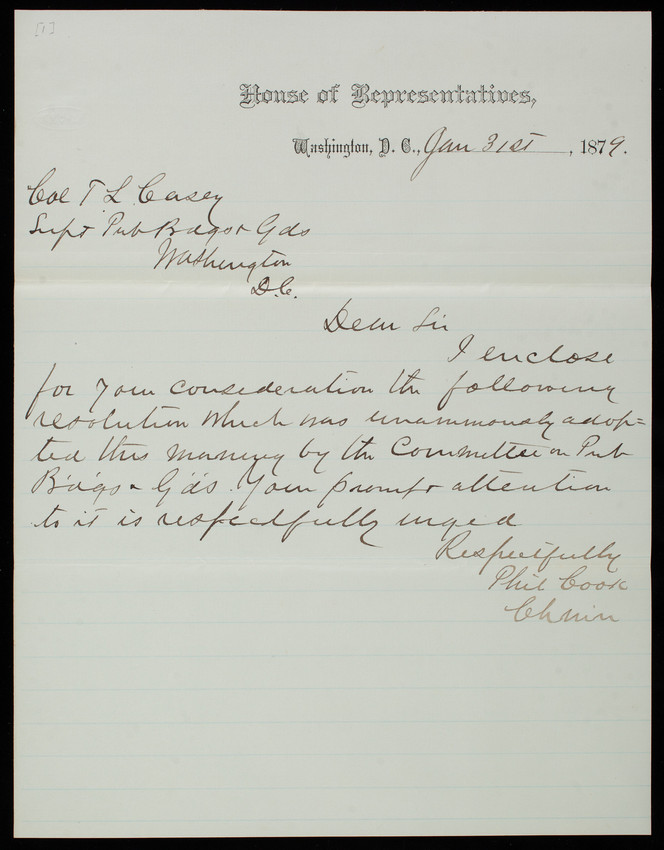 [1]
House of Representatives,
Washington, D. C., Jan 31st, 1879.
Col T L Casey
Supt Pub Bdgs & Gds
Washington
D.C.
Dear Sir
I enclose
for your consideration the following
resolution which was unanimously adop=
ted this morning by the Committee on Pub
B'd'gs & G'd's. Your prompt attention
to it is respectfully urged
Respectfully
Phil Cook
Chmn